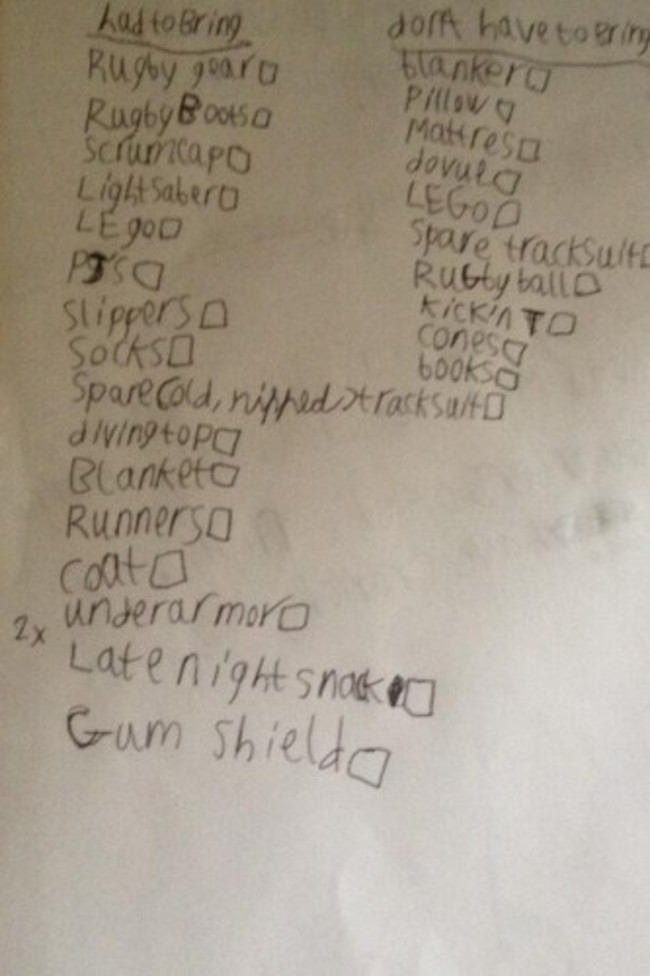 had to Bring
Rugby gear
Rugby Boots
Scrumcap
LightSaber
LEgo
PJ'S
Slippers
Socks
Spare (old, ripped) tracksuit
divingtop
Blanket
Runners
coat
2x underarmor
Late night snack
Gum Shield
don't have to Bring
blanker
Pillow
Mattres
dovue
LEGO
Spare tracksuit
Rugby ball
Kickin T
cones
books